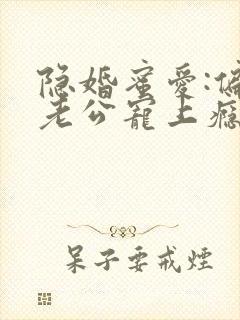 隐婚蜜爱:偏
老公宠上瘾
呆子要戒煙